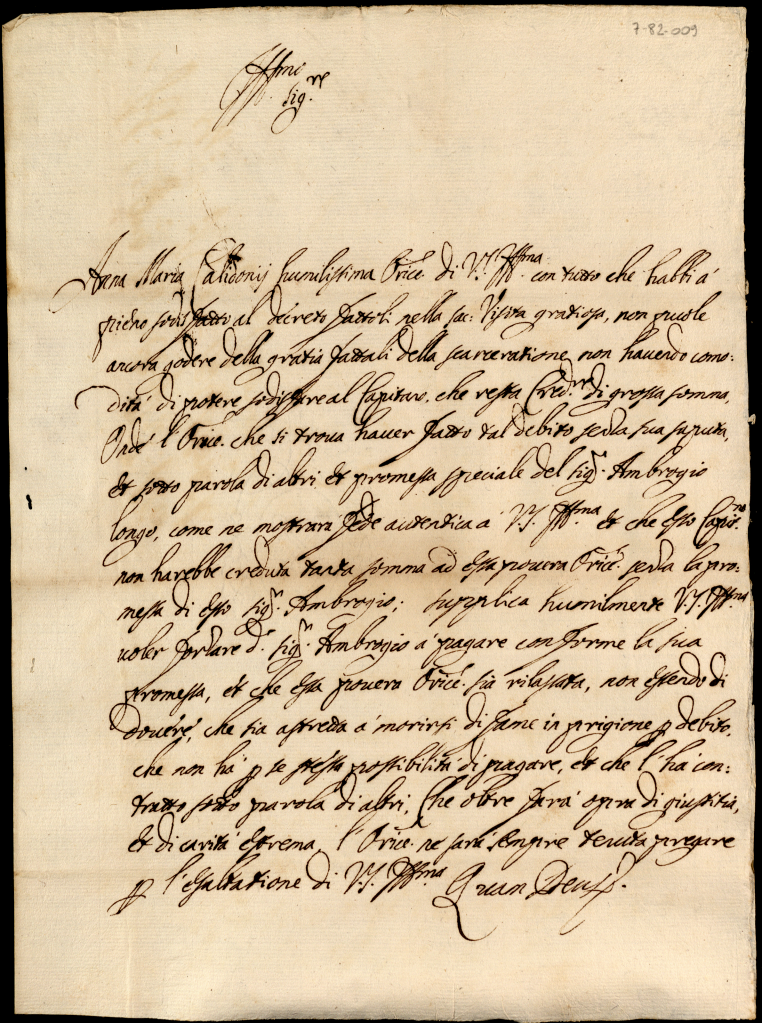 7-82-009
Ill.mo
Sig.re
Anna Maria Calidonij humilissima Oríce. di V.S. Ill.ma con tutto che habbi á
pieno sodisfatto al decreto fattoli nella sac: Visita gratiosa, non puole
ancora godere della gratia fattali della scarceratione, non havendo como:
dità di potere sodisfare al Capitano. che resta Cred.re di grossa somma,
Onde l'Oríce. che si trova haver fatto tal debito per la sua
et sotto parola di altri, et promessa speciale del Sig.r Ambrogio
longo, come ne mostrara fede autentica á V.S. Ill.ma et che esso Capit.no
non harebbe creduta tanta somma ad essa povera Oríce. senza la pro:
messa di esso Sig.r Ambrogio; supplica humilmente V.S. Ill.ma
voler forzare d.o Sig.r Ambrogio á pagare conforme la sua
promessa, et che essa povera Oríce. sia rilassata, non essendo di
dovere, che sia astretta á morirsi di fame in prigione p debito,
che non há p se stessa possibilità di pagare, et che l'ha con:
tratto sotto parola di altri, Che oltre sarà opra di giustitia,
et di carità estrema, l'Oríce. ne sarà sempre tenuta pregare
p l'esaltatione di V.S. Ill.ma Quam Deus &.